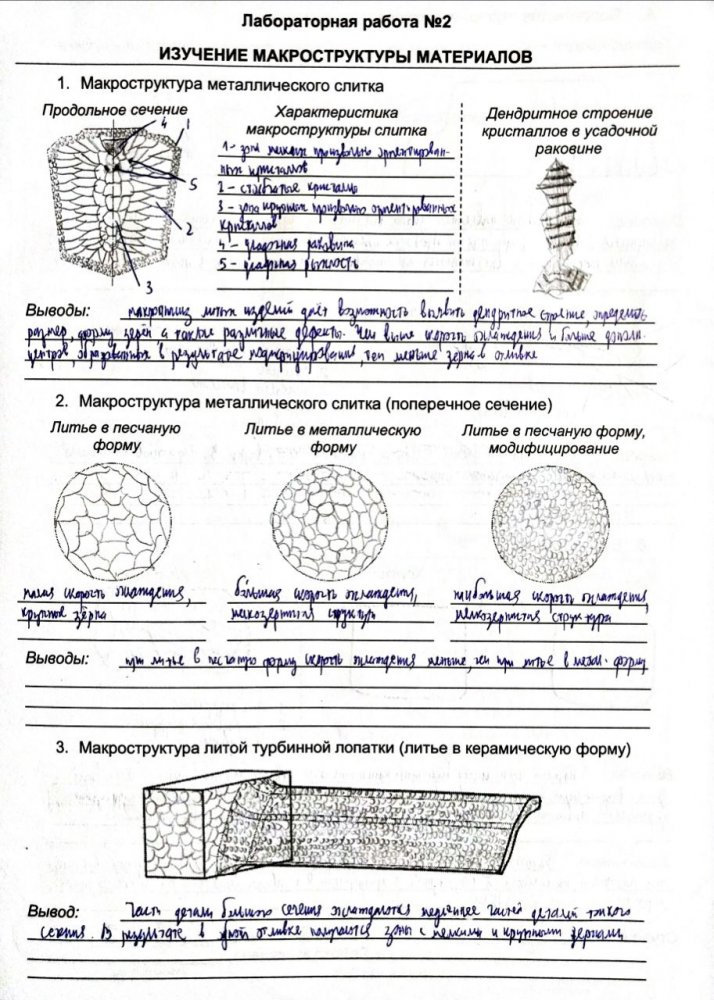 Лабораторная работа №2
ИЗУЧЕНИЕ МАКРОСТРУКТУРЫ МАТЕРИАЛОВ
1. Макроструктура металлического слитка
Продольное сечение
4 1
5
2
3
Характеристика
макроструктуры слитка
1 - зона мелких произвольно ориентирован-
ных кристаллов
2 - столбчатые кристаллы
3 - зона крупных произвольно ориентированных
кристаллов
4 - усадочная раковина
5 - усадочная рыхлость
Дендритное строение
кристаллов в усадочной
раковине
Выводы: макроанализ литых изделий даёт возможность выявить дендритное строение, определить
размер, форму зёрен а также различные дефекты. Чем выше скорость охлаждения и больше дополн.
центров, образованных в результате модифицирования, тем меньше зёрна в отливке
2. Макроструктура металлического слитка (поперечное сечение)
Литье в песчаную
форму
малая скорость охлаждения,
крупное зерно
Литье в металлическую
форму
большая скорость охлаждения,
мелкозернистая структура
Литье в песчаную форму,
модифицирование
наибольшая скорость охлаждения,
мелкозернистая структура
Выводы: при литье в песчаную форму скорость охлаждения меньше, чем при литье в метал. форму
3. Макроструктура литой турбинной лопатки (литье в керамическую форму)
Вывод: Часть детали большого сечения охлаждается медленнее частей детали тонкого
сечения. В результате в одной отливке получаются зоны с мелкими и крупными зёрнами